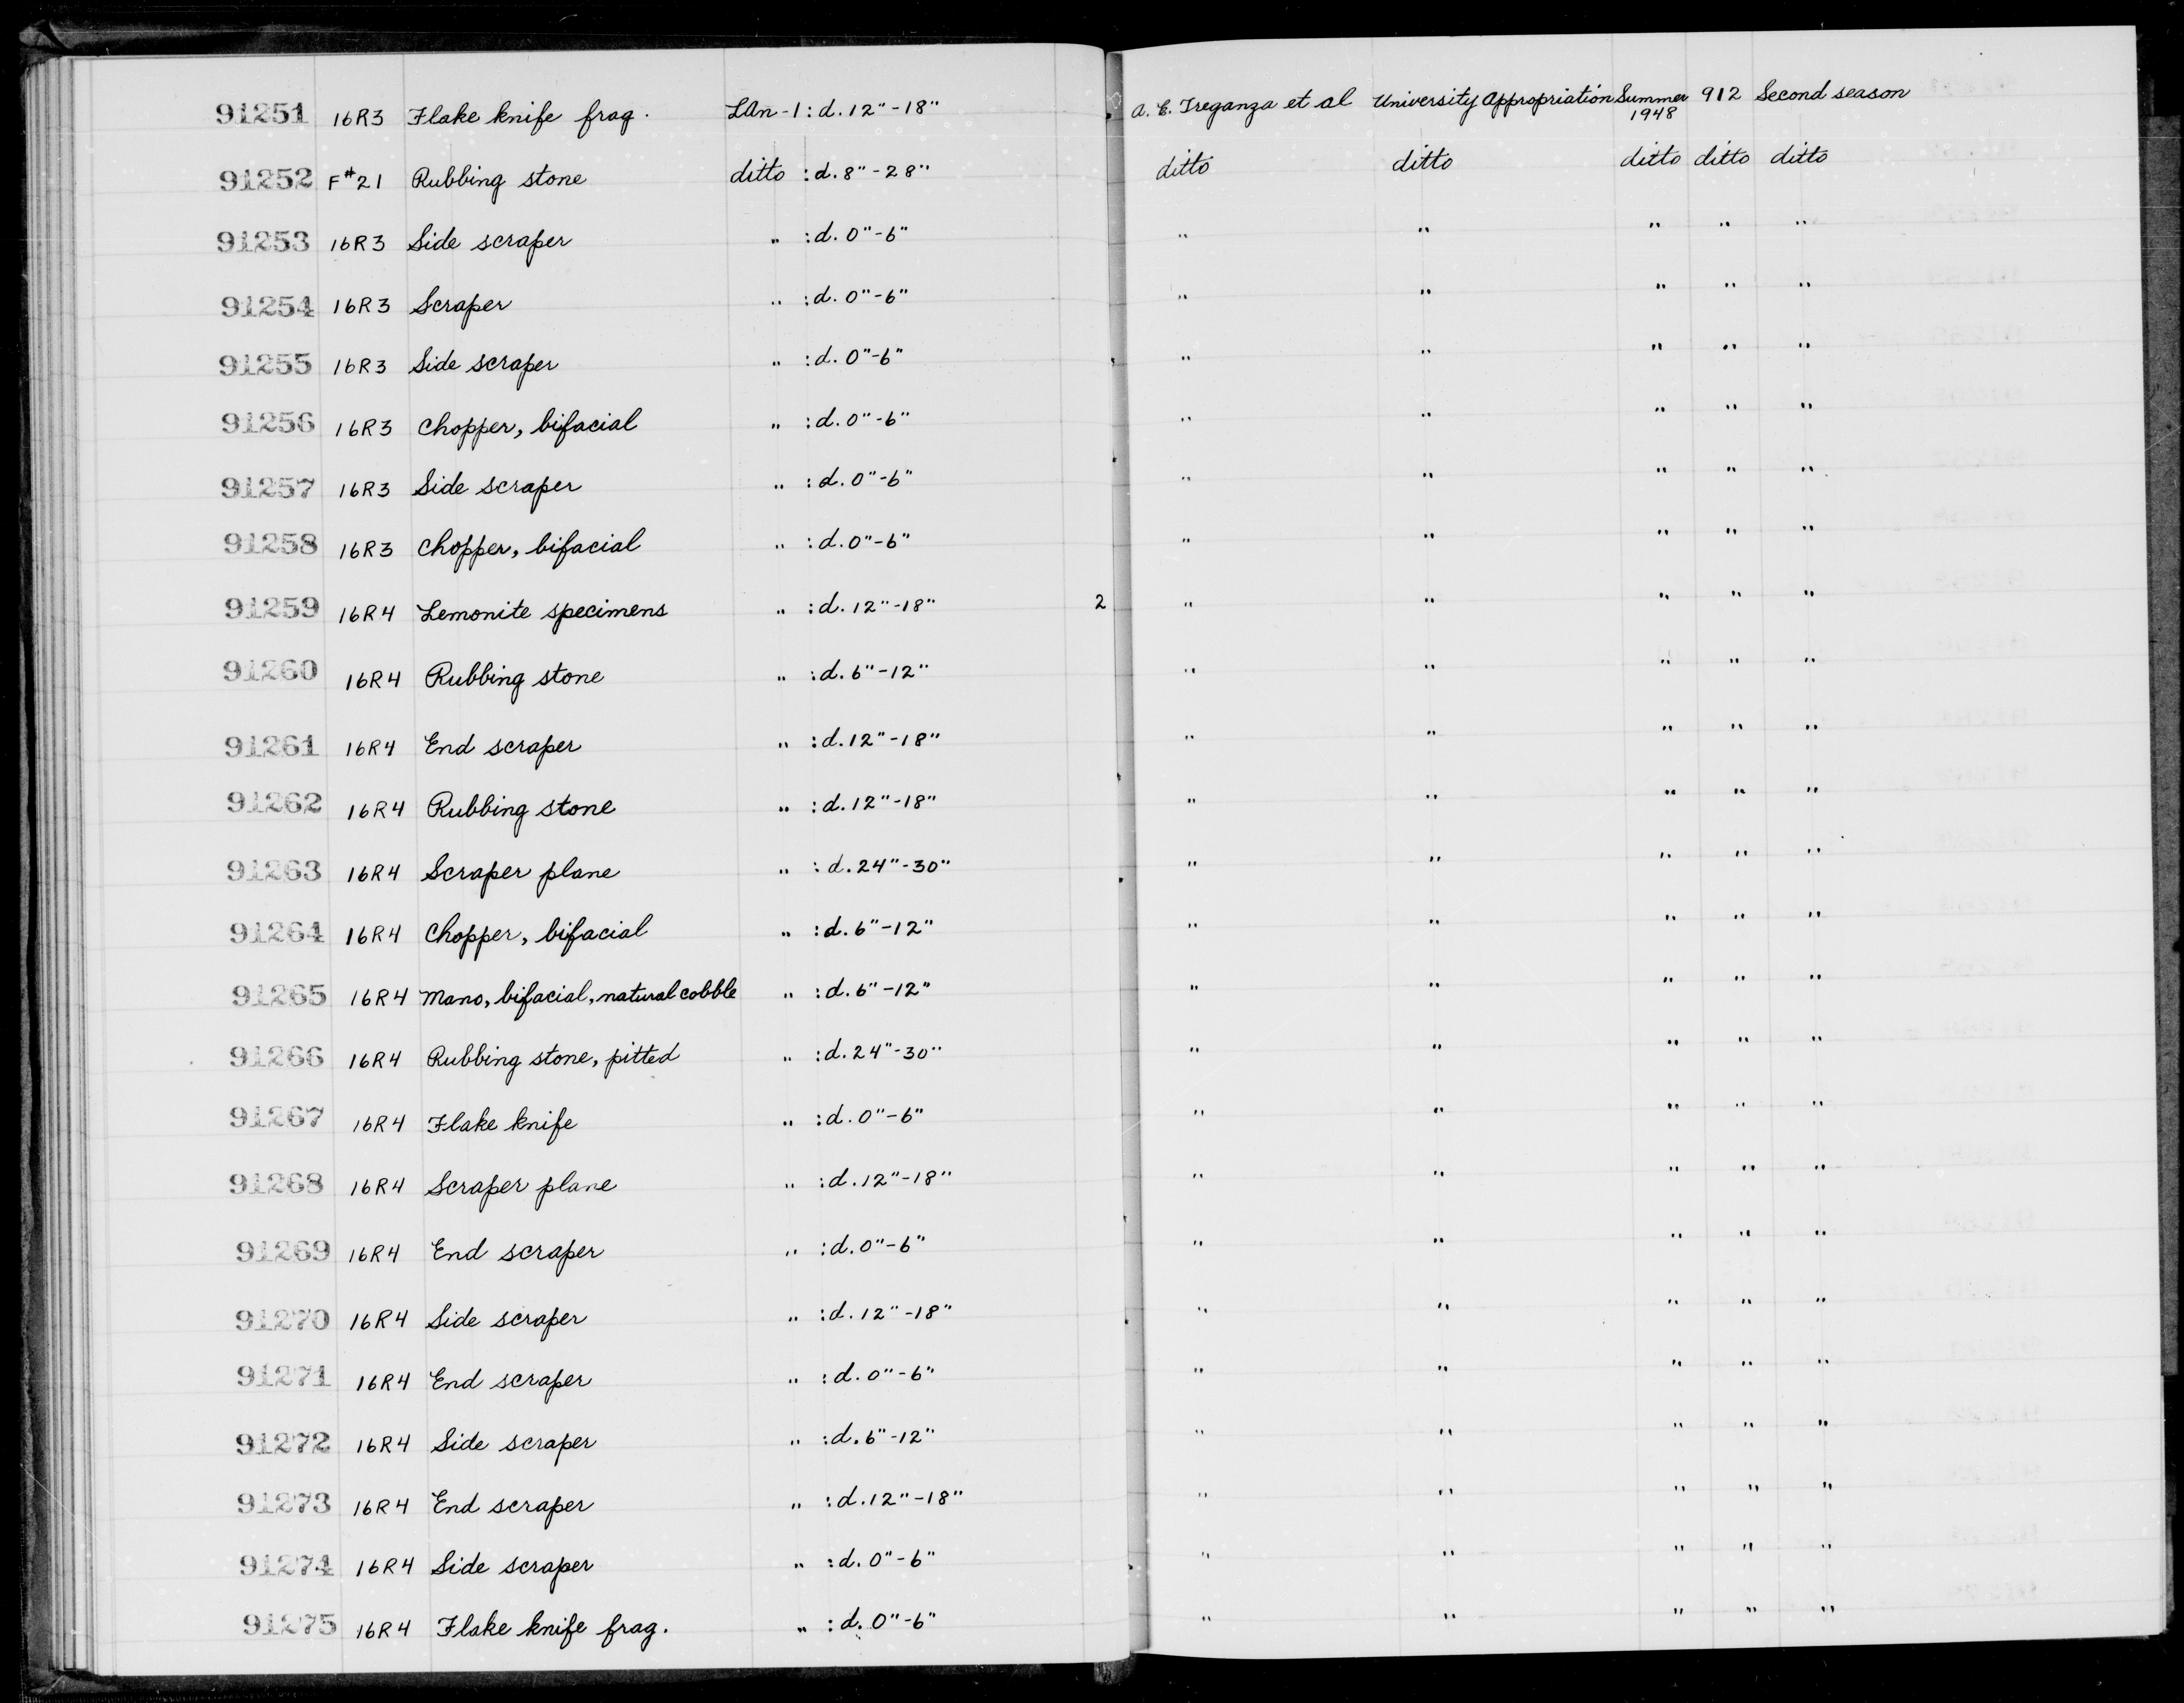 91251 16R3 Flake knife frag. LAn-1 : d. 12"-18" A. E. Treganza et al University Appropriation Summer 1948 912 Second season
91252 F#21 Rubbing stone ditto : d. 8"-28" ditto ditto ditto ditto ditto
91253 16R3 Side scraper " : d. 0"-6" " " " " "
91254 16R3 Scraper " : d. 0"-6" " " " " "
91255 16R3 Side scraper " : d. 0"-6" " " " " "
91256 16R3 Chopper, bifacial " : d. 0"-6" " " " " "
91257 16R3 Side scraper " : d. 0"-6" " " " " "
91258 16R3 Chopper, bifacial " : d. 0"-6" " " " " "
91259 16R4 Lemonite specimens " : d. 12"-18" 2 " " " " "
91260 16R4 Rubbing stone " : d. 6"-12" " " " " "
91261 16R4 End scraper " : d. 12"-18" " " " " "
91262 16R4 Rubbing stone " : d. 12"-18" " " " " "
91263 16R4 Scraper plane " : d. 24"-30" " " " " "
91264 16R4 Chopper, bifacial " : d. 6"-12" " " " " "
91265 16R4 Mano, bifacial, natural cobble " : d. 6"-12" " " " " "
91266 16R4 Rubbing stone, pitted " : d. 24"-30" " " " " "
91267 16R4 Flake knife " : d. 0"-6" " " " " "
91268 16R4 Scraper plane " : d. 12"-18" " " " " "
91269 16R4 End scraper " : d. 0"-6" " " " " "
91270 16R4 Side scraper " : d. 12"-18" " " " " "
91271 16R4 End scraper " : d. 0"-6" " " " " "
91272 16R4 Side scraper " : d. 6"-12" " " " " "
91273 16R4 End scraper " : d. 12"-18" " " " " "
91274 16R4 Side scraper " : d. 0"-6" " " " " "
91275 16R4 Flake knife frag. " : d. 0"-6" " " " " "